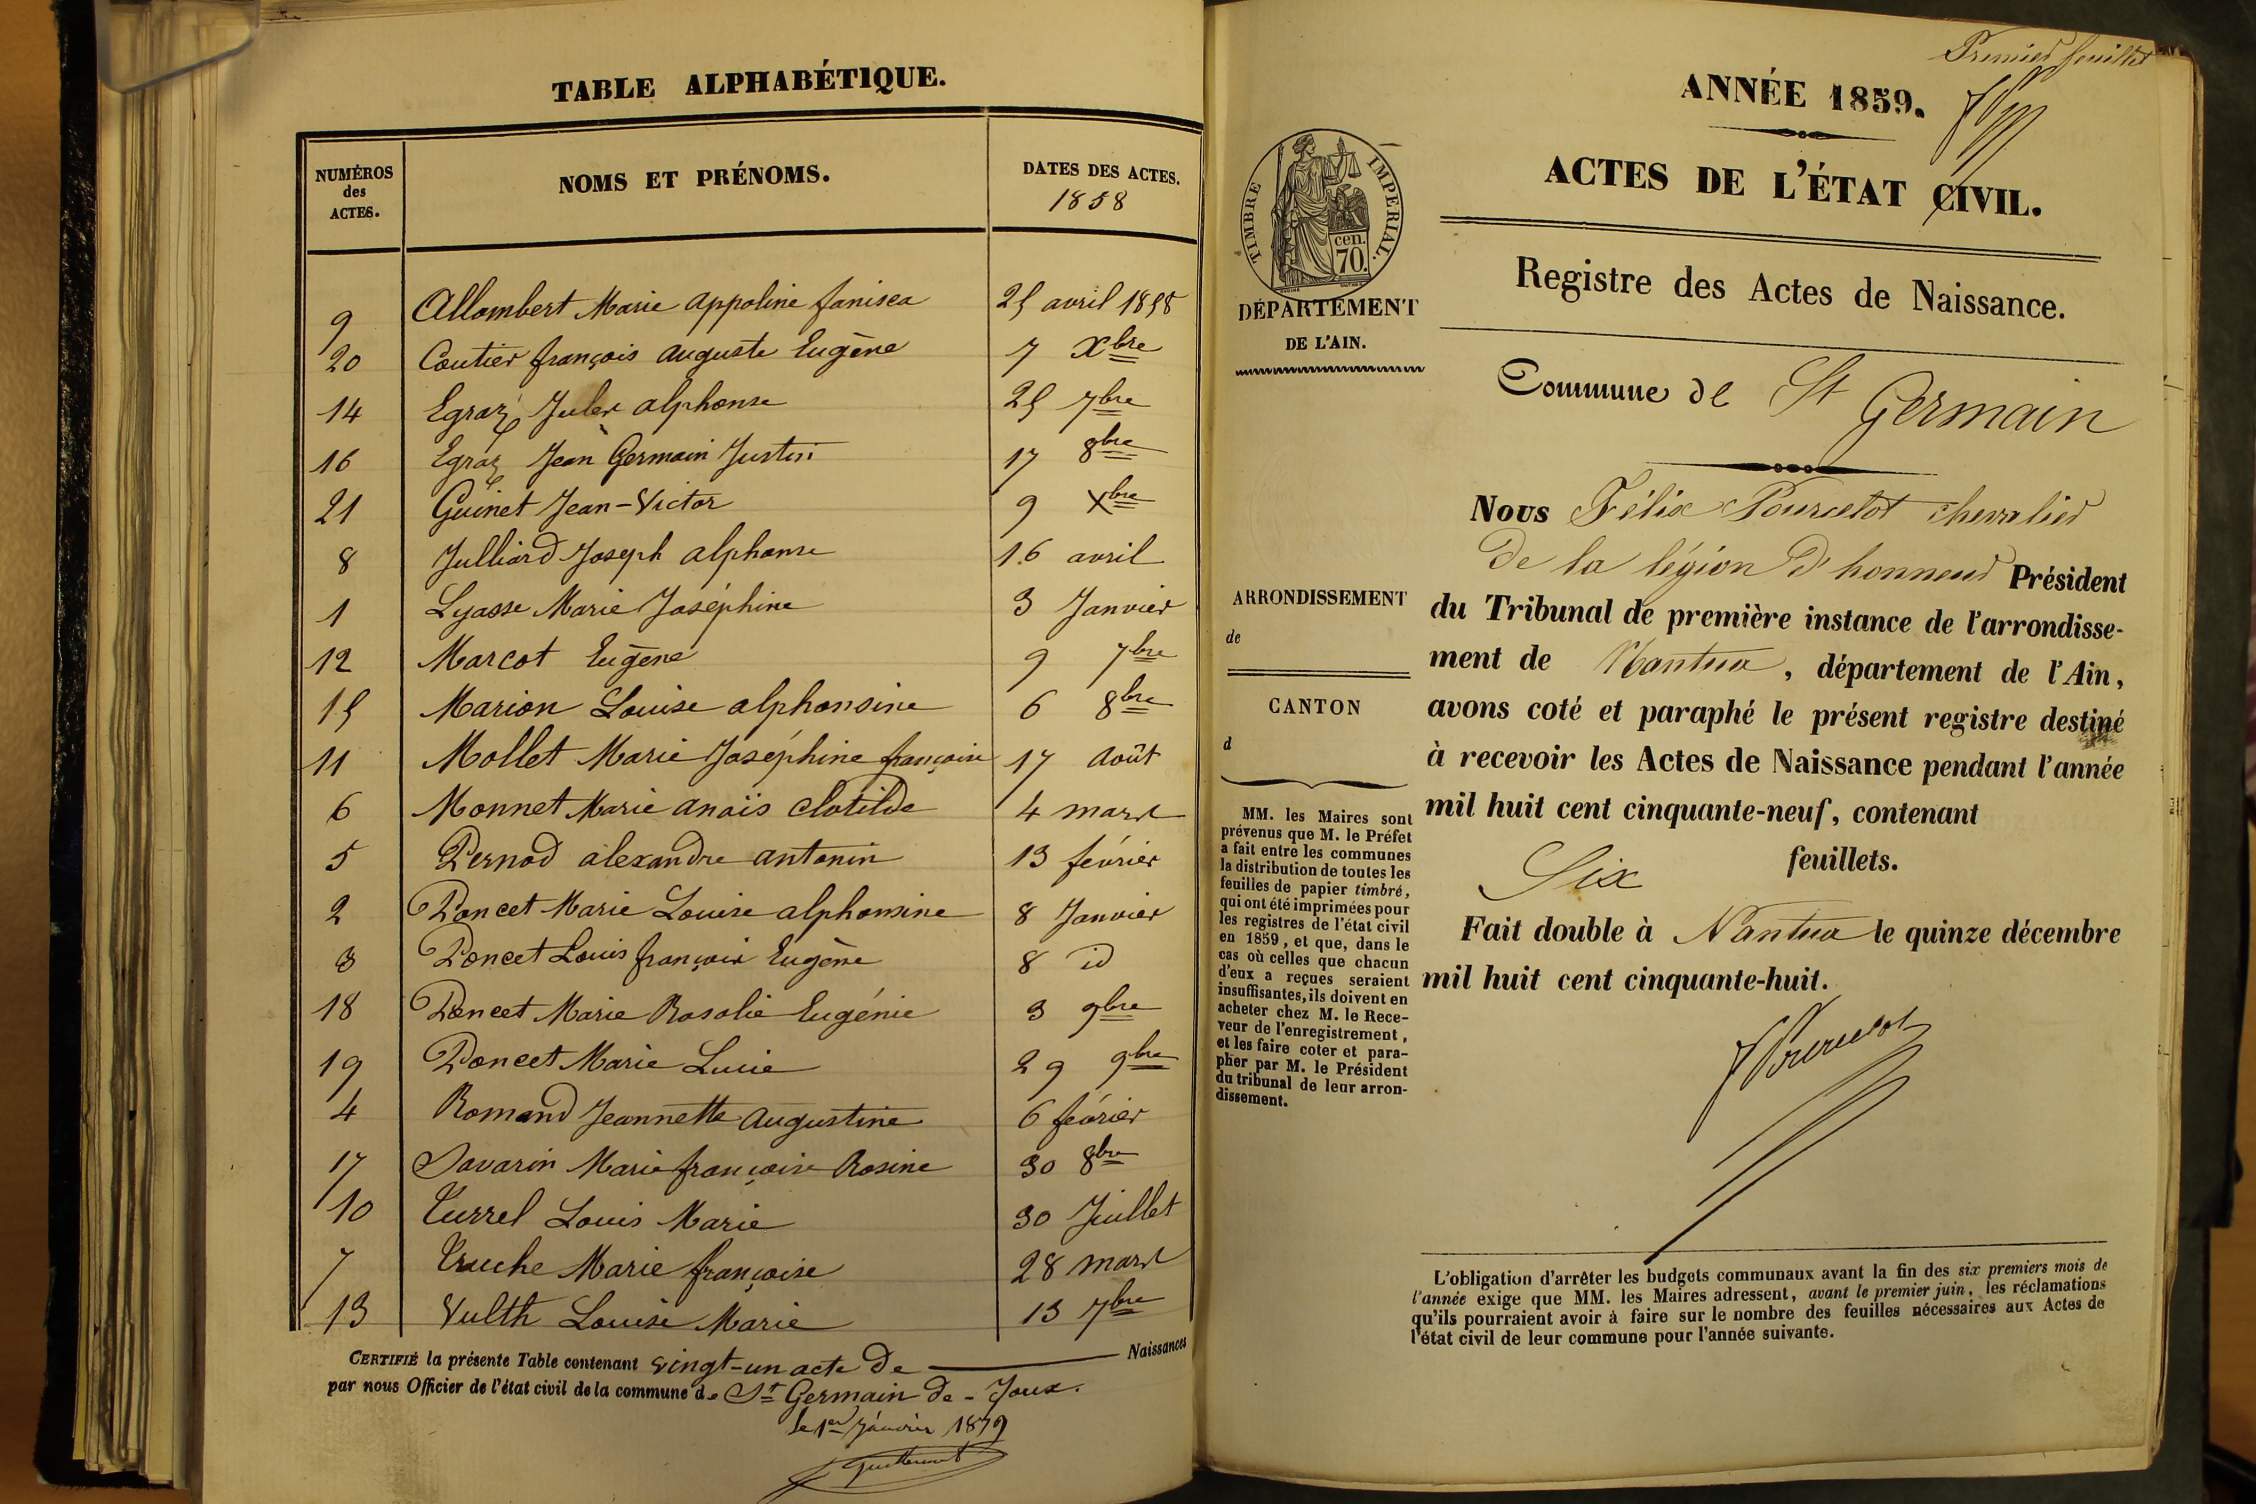 TABLE ALPHABÉTIQUE.
NUMÉROS des ACTES. NOMS ET PRÉNOMS. DATES DES ACTES.
1858
9 Allombert Marie Appoline fanisca 25 avril 1858
20 Coutier françois Auguste Eugène 7 Xbre
14 Egraz Jules alphonse 25 7bre
16 Egraz Jean Germain Justin 17 8bre
21 Guinet Jean-Victor 9 Xbre
8 Julliard Joseph alphonse 16 avril
1 Lyasse Marie Joséphine 3 Janvier
12 Marcot Eugène 9 7bre
15 Marion Louise alphonsine 6 8bre
11 Mollet Marie Joséphine françoise 17 Août
6 Monnet Marie anaïs Clotilde 4 mars
5 Pernod alexandre antonin 13 février
2 Poncet Marie Louise alphonsine 8 Janvier
3 Poncet Louis françois Eugène 8 id
18 Poncet Marie Rosalie Eugénie 3 9bre
19 Poncet Marie Lucie 29 9bre
4 Romand Jeannette Augustine 6 février
17 Savarin Marie françoise Rosine 30 8bre
10 Turrel Louis Marie 30 Juillet
7 Truche Marie françoise 28 mars
13 Vulth Louise Marie 13 7bre
CERTIFIÉ la présente Table contenant vingt-un acte de Naissances
par nous Officier de l'état civil de la commune de St Germain de-Joux.
le 1er Janvier 1879
Premier feuillet
ANNÉE 1859.
ACTES DE L'ÉTAT CIVIL.
TIMBRE IMPERIAL.
cen.
70.
DÉPARTEMENT
DE L'AIN.
Registre des Actes de Naissance.
Commune de St Germain
Nous Félix Pourcelot chevalier
de la légion d'honneur Président
du Tribunal de première instance de l'arrondisse-
ment de Nantua, département de l'Ain,
avons coté et paraphé le présent registre destiné
à recevoir les Actes de Naissance pendant l'année
mil huit cent cinquante-neuf, contenant
Six feuillets.
Fait double à Nantua le quinze décembre
mil huit cent cinquante-huit.
FPourcelot
ARRONDISSEMENT
de
CANTON
d
MM. les Maires sont
prévenus que M. le Préfet
a fait entre les communes
la distribution de toutes les
feuilles de papier timbré,
qui ont été imprimées pour
les registres de l'état civil
en 1859, et que, dans le
cas où celles que chacun
d'eux a reçues seraient
insuffisantes, ils doivent en
acheter chez M. le Rece-
veur de l'enregistrement,
et les faire coter et para-
pher par M. le Président
du tribunal de leur arron-
dissement.
L'obligation d'arrêter les budgets communaux avant la fin des six premiers mois de
l'année exige que MM. les Maires adressent, avant le premier juin, les réclamations
qu'ils pourraient avoir à faire sur le nombre des feuilles nécessaires aux Actes de
l'état civil de leur commune pour l'année suivante.